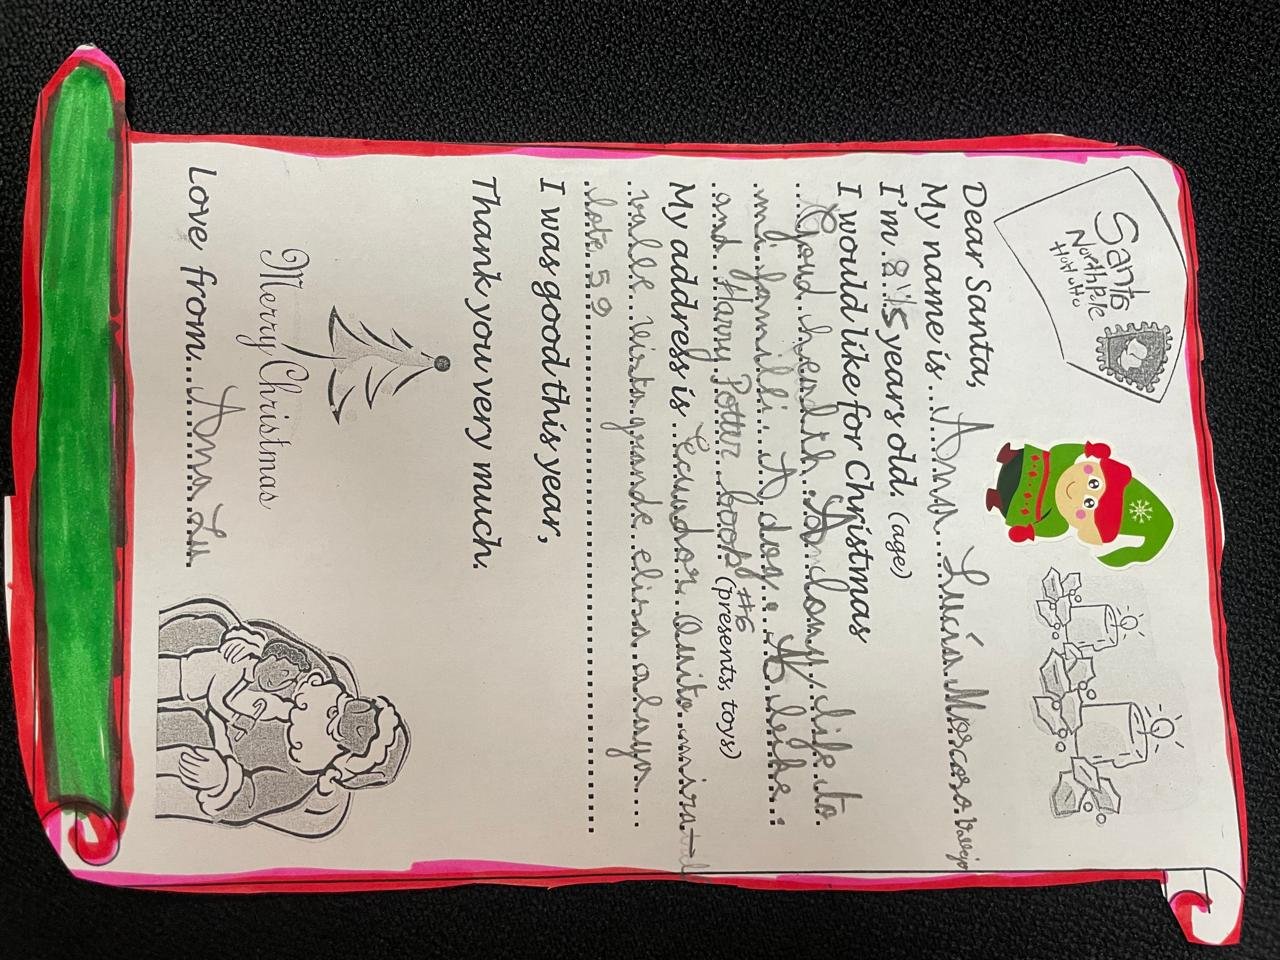 Santa
North Pole
HoHoHo
Dear Santa,
My name is Ana Lucía Moscoso Vallejo
I'm 8 1/5 years old. (age)
I would like for Christmas
Goud health A longe life to
mi familli. A dog. A leifke.
and Harry Potter book #6 (presents, toys)
My address is Ecuador Quito miratul
valle vista grande elisa alaya
lote 59
I was good this year,
Thank you very much.
Merry Christmas
Love from Ana Lu